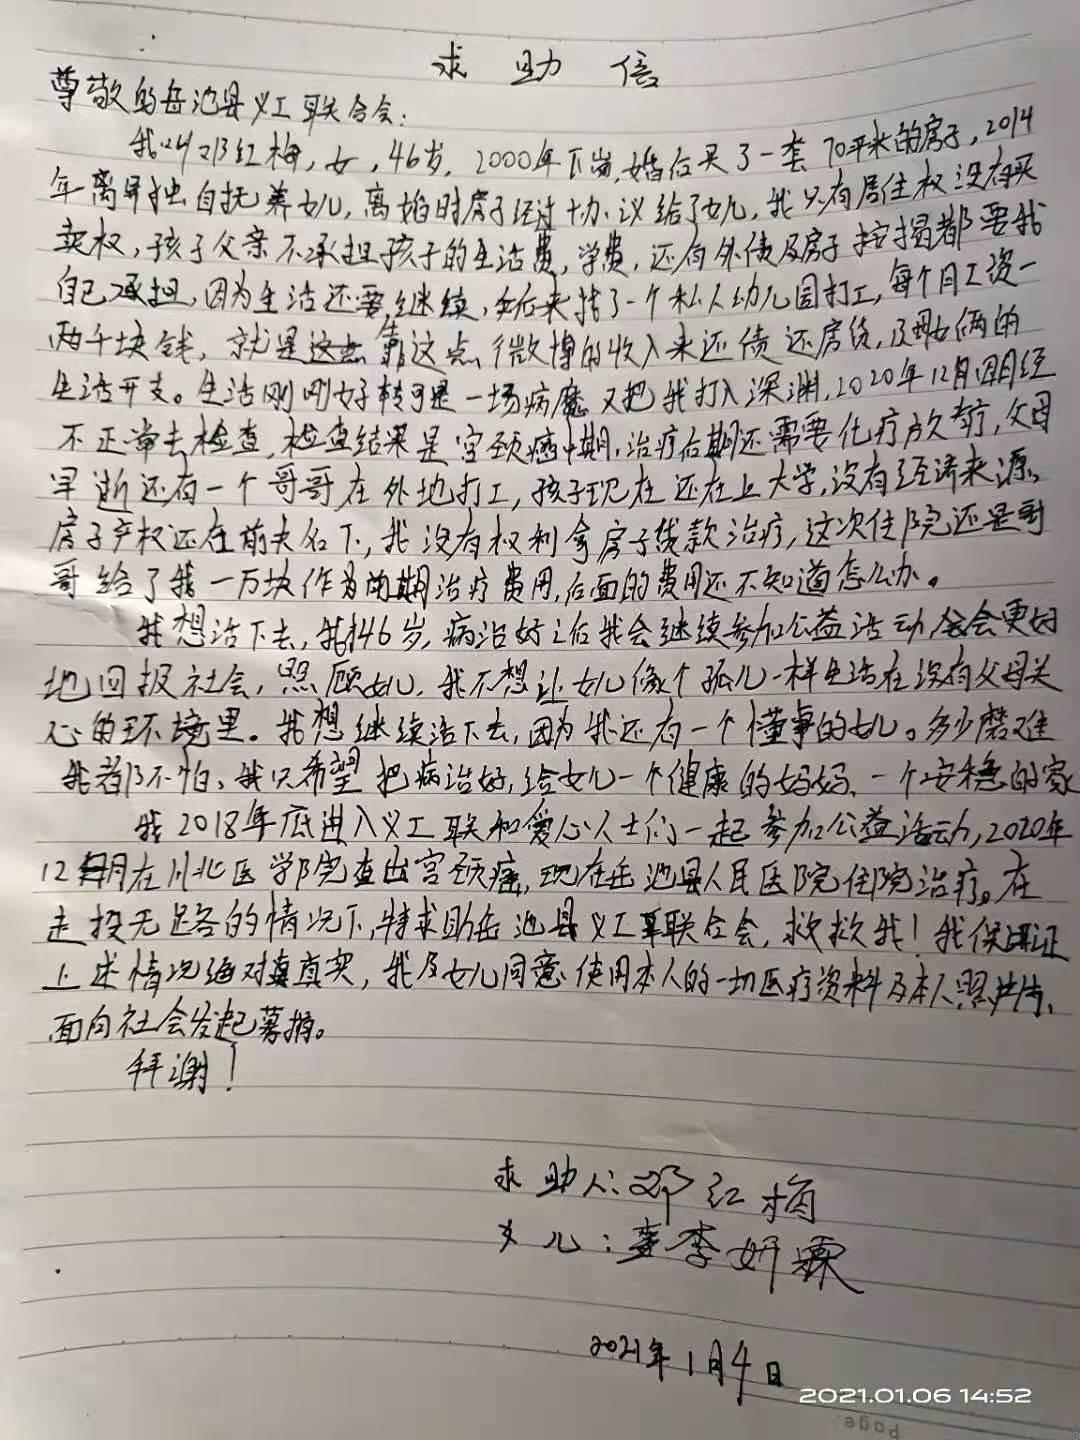 求助信
尊敬的岳池县义工联合会：
我叫邓红梅，女，46岁，2000年下岗，婚后买了一套70平米的房子，2014
年离异独自抚养女儿，离婚时房子经过协议给了女儿，我只有居住权没有买
卖权，孩子父亲不承担孩子的生活费，学费，还有外债及房子按揭都要我
自己承担，因为生活还要继续，后来找了一个私人幼儿园打工，每个月工资一
两千块钱，就是靠这点微博的收入来还债还房贷，及母女俩的
生活开支。生活刚刚好转可是一场病魔又把我打入深渊，2020年12月因月经
不正常去检查，检查结果是宫颈癌中期，治疗后期还需要化疗放疗，父母
早逝还有一个哥哥在外地打工，孩子现在还在上大学，没有经济来源。
房子产权还在前夫名下，我没有权利拿房子贷款治疗，这次住院还是哥
哥给了我一万块作为前期治疗费用，后面的费用还不知道怎么办。
我想活下去，我才46岁，病治好之后我会继续参加公益活动，会更好
地回报社会，照顾女儿，我不想让女儿像个孤儿一样生活在没有父母关
心的环境里。我想继续活下去，因为我还有一个懂事的女儿。多少磨难
我都不怕、我只希望把病治好，给女儿一个健康的妈妈、一个安稳的家
我2018年底进入义工联和爱心人士们一起参加公益活动，2020年
12月在川北医学院查出宫颈癌，现在岳池县人民医院住院治疗。在
走投无路的情况下，特求助岳池县义工联合会，救救我！我保证
上述情况绝对真实，我及女儿同意使用本人的一切医疗资料及本人照片，
面向社会发起募捐。
拜谢！
求助人：邓红梅
女儿：李妍霖
2021年1月4日
2021.01.06 14:52
page